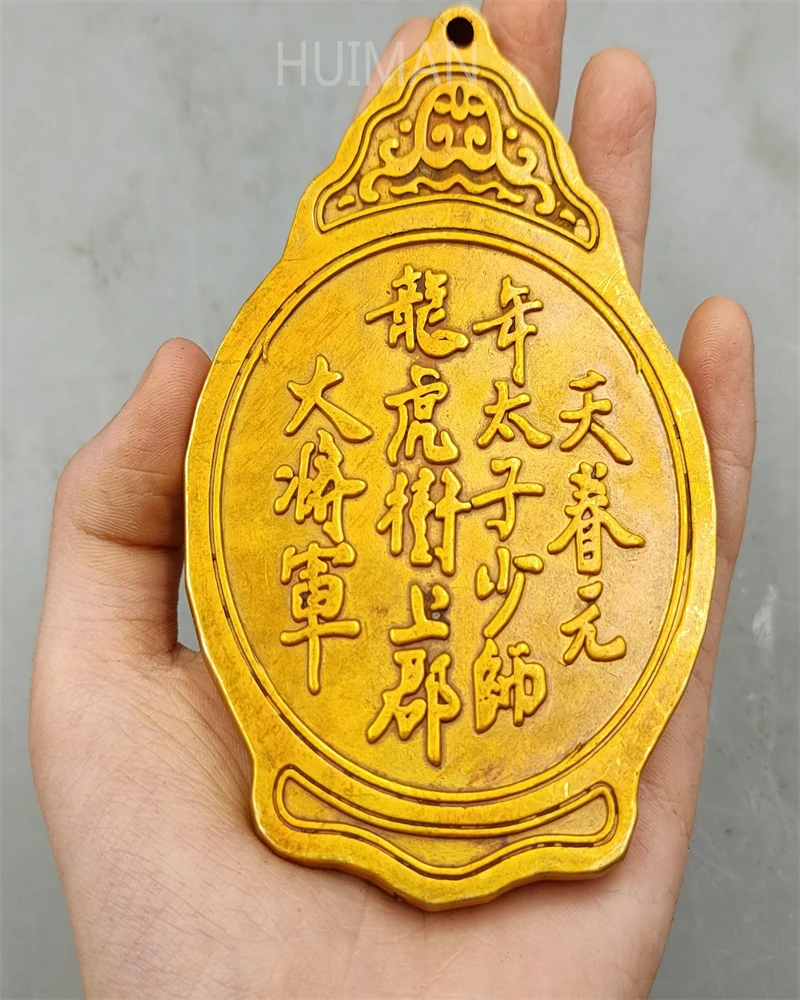 HUIMAN
天春元
年太子少師
龍虎樹上郡
大將軍